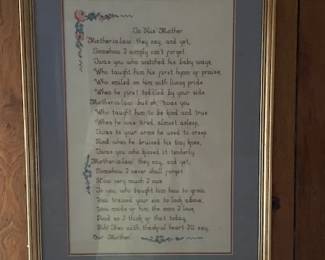 To His Mother
Mother-in-law they say, and yet,
Somehow I simply can't forget
'Twas you who watched his baby ways
Who taught him his first hymn of praise
Who smiled on him with loving pride
When he first toddled by your side
Mother-in-law but oh, 'twas you
Who taught him to be kind and true
When he was tired, almost asleep,
'Twas to your arms he used to creep
And when he bruised his tiny knee,
'Twas you who kissed it tenderly
Mother-in-law they say, and yet,
Somehow I never shall forget
How very much I owe
To you who taught him how to grow.
You trained your son to look above,
You made of him the man I love,
And so I think of that today
Ah! then with thankful heart I'll say
Our Mother.